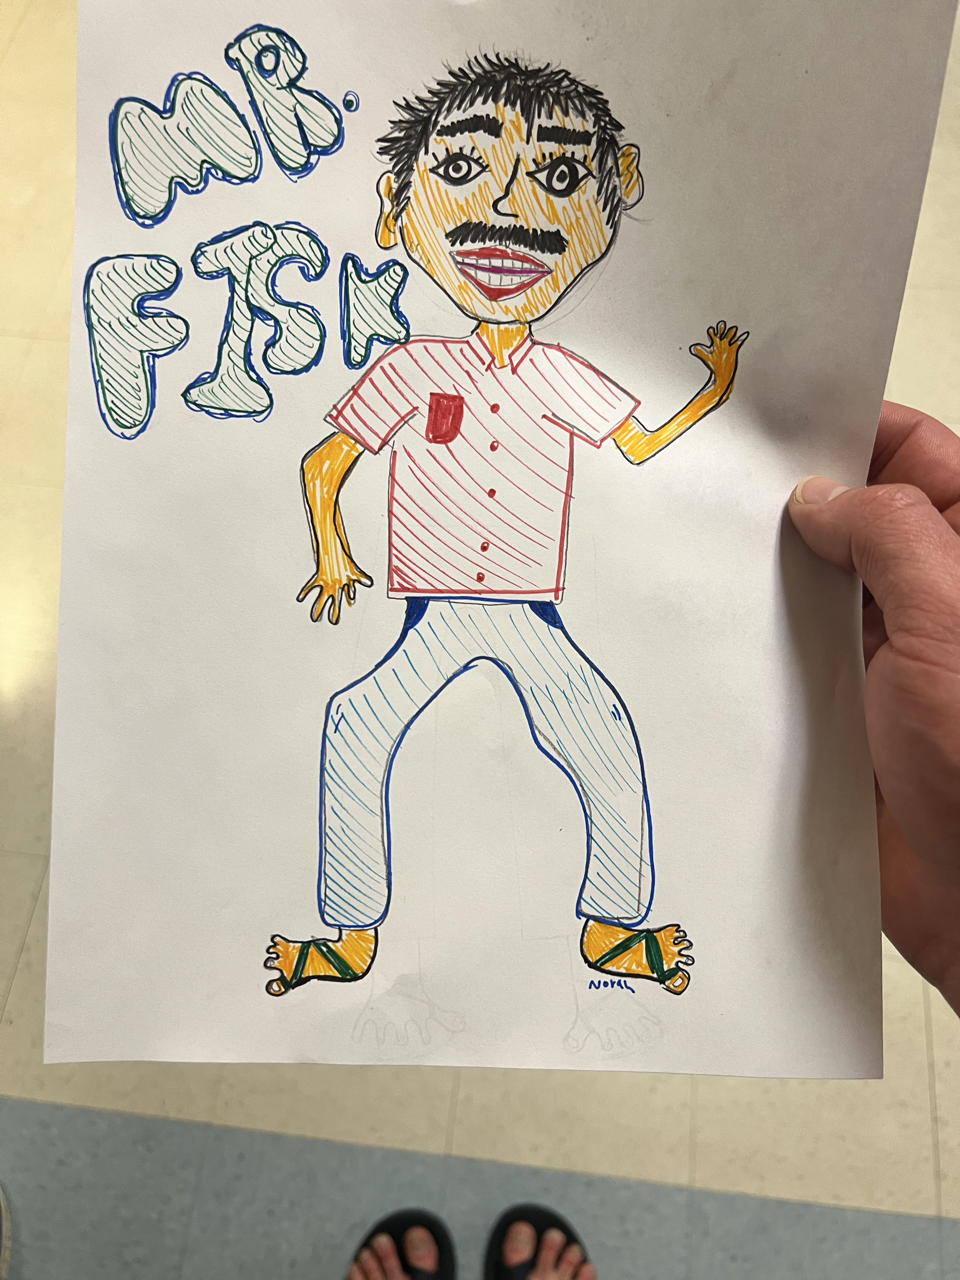 MR.
FISK
Norah